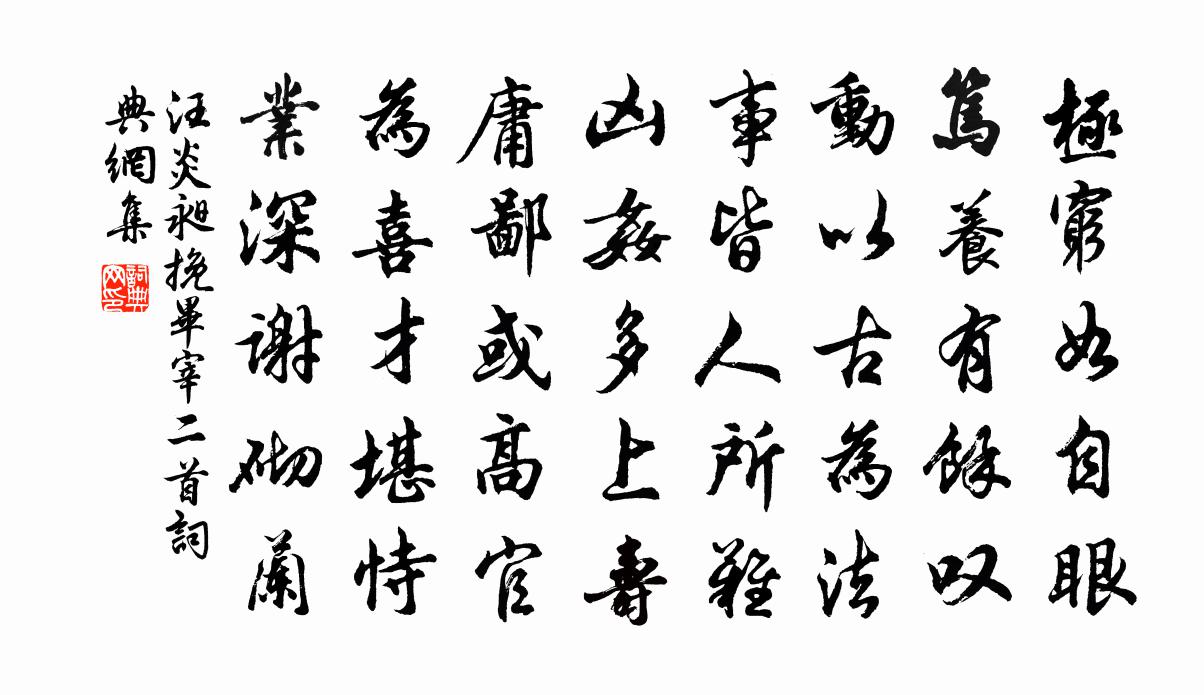 極窮如自眼
篤養有餘叹
動以古為法
事皆人所難
凶姦多上壽
庸鄙或高官
為喜才堪恃
業深謝砌蘭
汪炎昶挽畢宰二首詞
典網集
詞典
网印